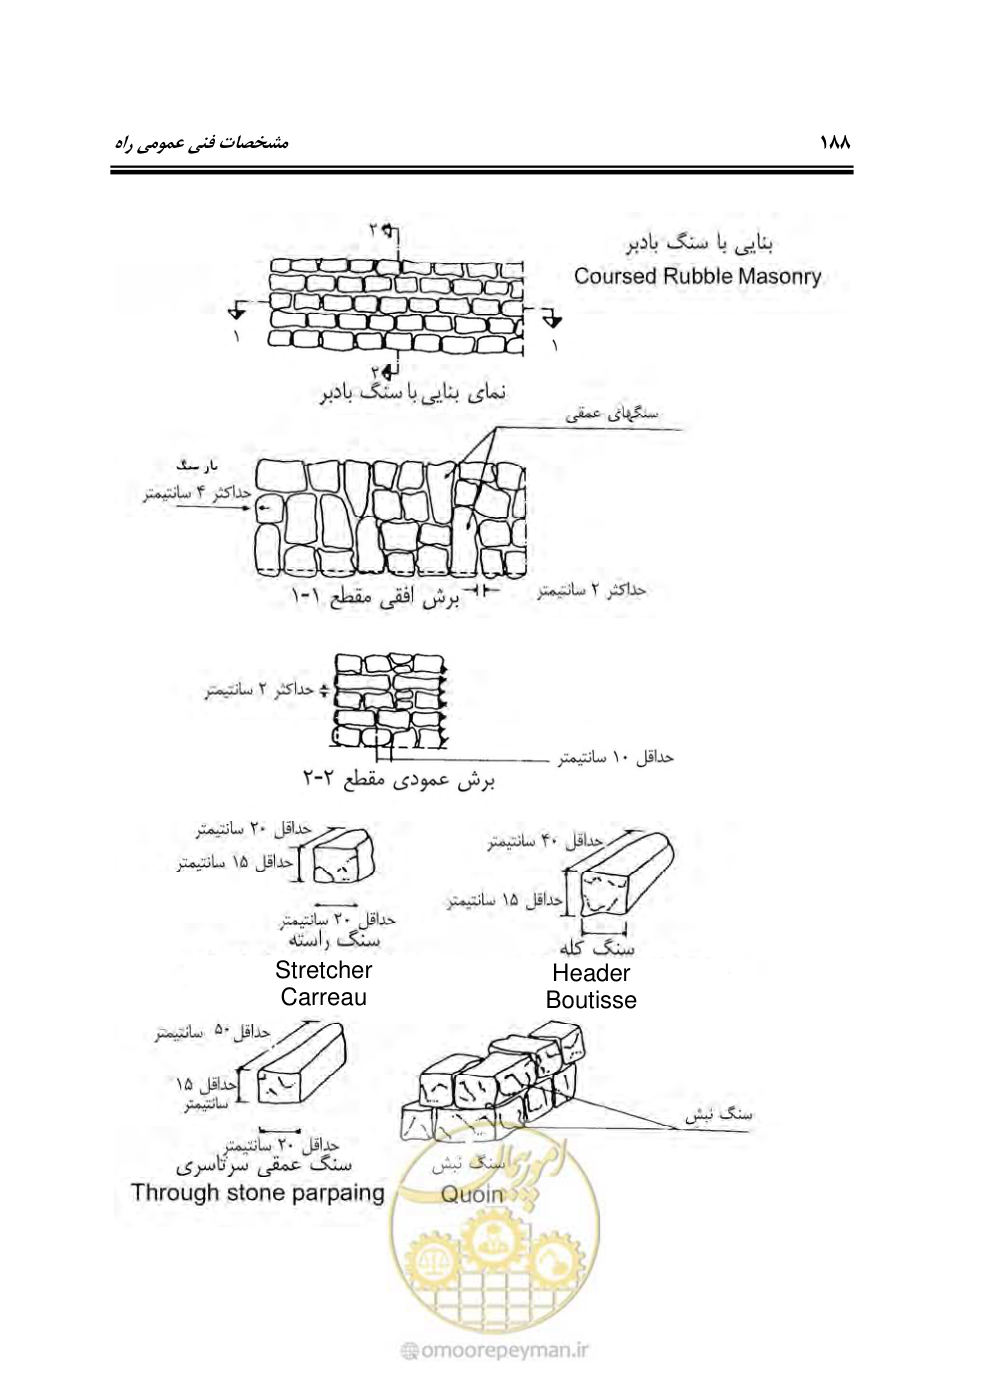 ۱۸۸
مشخصات فنی عمومی راه
بنایی با سنگ بادبر
Coursed Rubble Masonry
۲
۱
۱
۲
نمای بنایی با سنگ بادبر
سنگهای عمقی
بار سنگ
حداکثر ۴ سانتیمتر
حداکثر ۲ سانتیمتر
برش افقی مقطع ۱-۱
حداکثر ۲ سانتیمتر
حداقل ۱۰ سانتیمتر
برش عمودی مقطع ۲-۲
حداقل ۴۰ سانتیمتر
حداقل ۱۵ سانتیمتر
سنگ کله
Header
Boutisse
حداقل ۲۰ سانتیمتر
حداقل ۱۵ سانتیمتر
حداقل ۲۰ سانتیمتر
سنگ راسته
Stretcher
Carreau
سنگ نبش
سنگ نبش
Quoin
حداقل ۵۰ سانتیمتر
حداقل ۱۵
سانتیمتر
حداقل ۲۰ سانتیمتر
سنگ عمقی سرتاسری
Through stone parpaing
امور پیمان
@omoorepeyman.ir